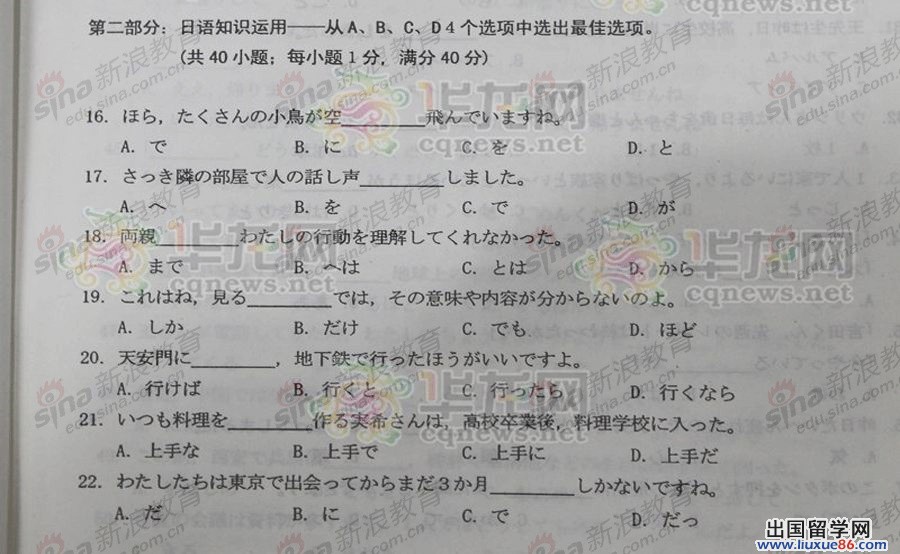 第二部分：日语知识运用——从A、B、C、D4个选项中选出最佳选项。
(共40小题；每小题1分，满分40分)
16. ほら，たくさんの小鳥が空________飛んでいますね。
A. で B. に C. を D. と
17. さっき隣の部屋で人の話し声________しました。
A. へ B. を C. で D. が
18. 両親________わたしの行動を理解してくれなかった。
A. まで B. へは C. とは D. から
19. これはね，見る________では，その意味や内容が分からないのよ。
A. しか B. だけ C. でも D. ほど
20. 天安門に________，地下鉄で行ったほうがいいですよ。
A. 行けば B. 行くと C. 行ったら D. 行くなら
21. いつも料理を________作る実希さんは，高校卒業後，料理学校に入った。
A. 上手な B. 上手で C. 上手に D. 上手だ
22. わたしたちは東京で出会ってからまだ3か月________しかないですね。
A. だ B. に C. で D. だっ
sina新浪教育
edu.sina.com.cn
华龙网
cqnews.net
出国留学网
www.liuxue86.com